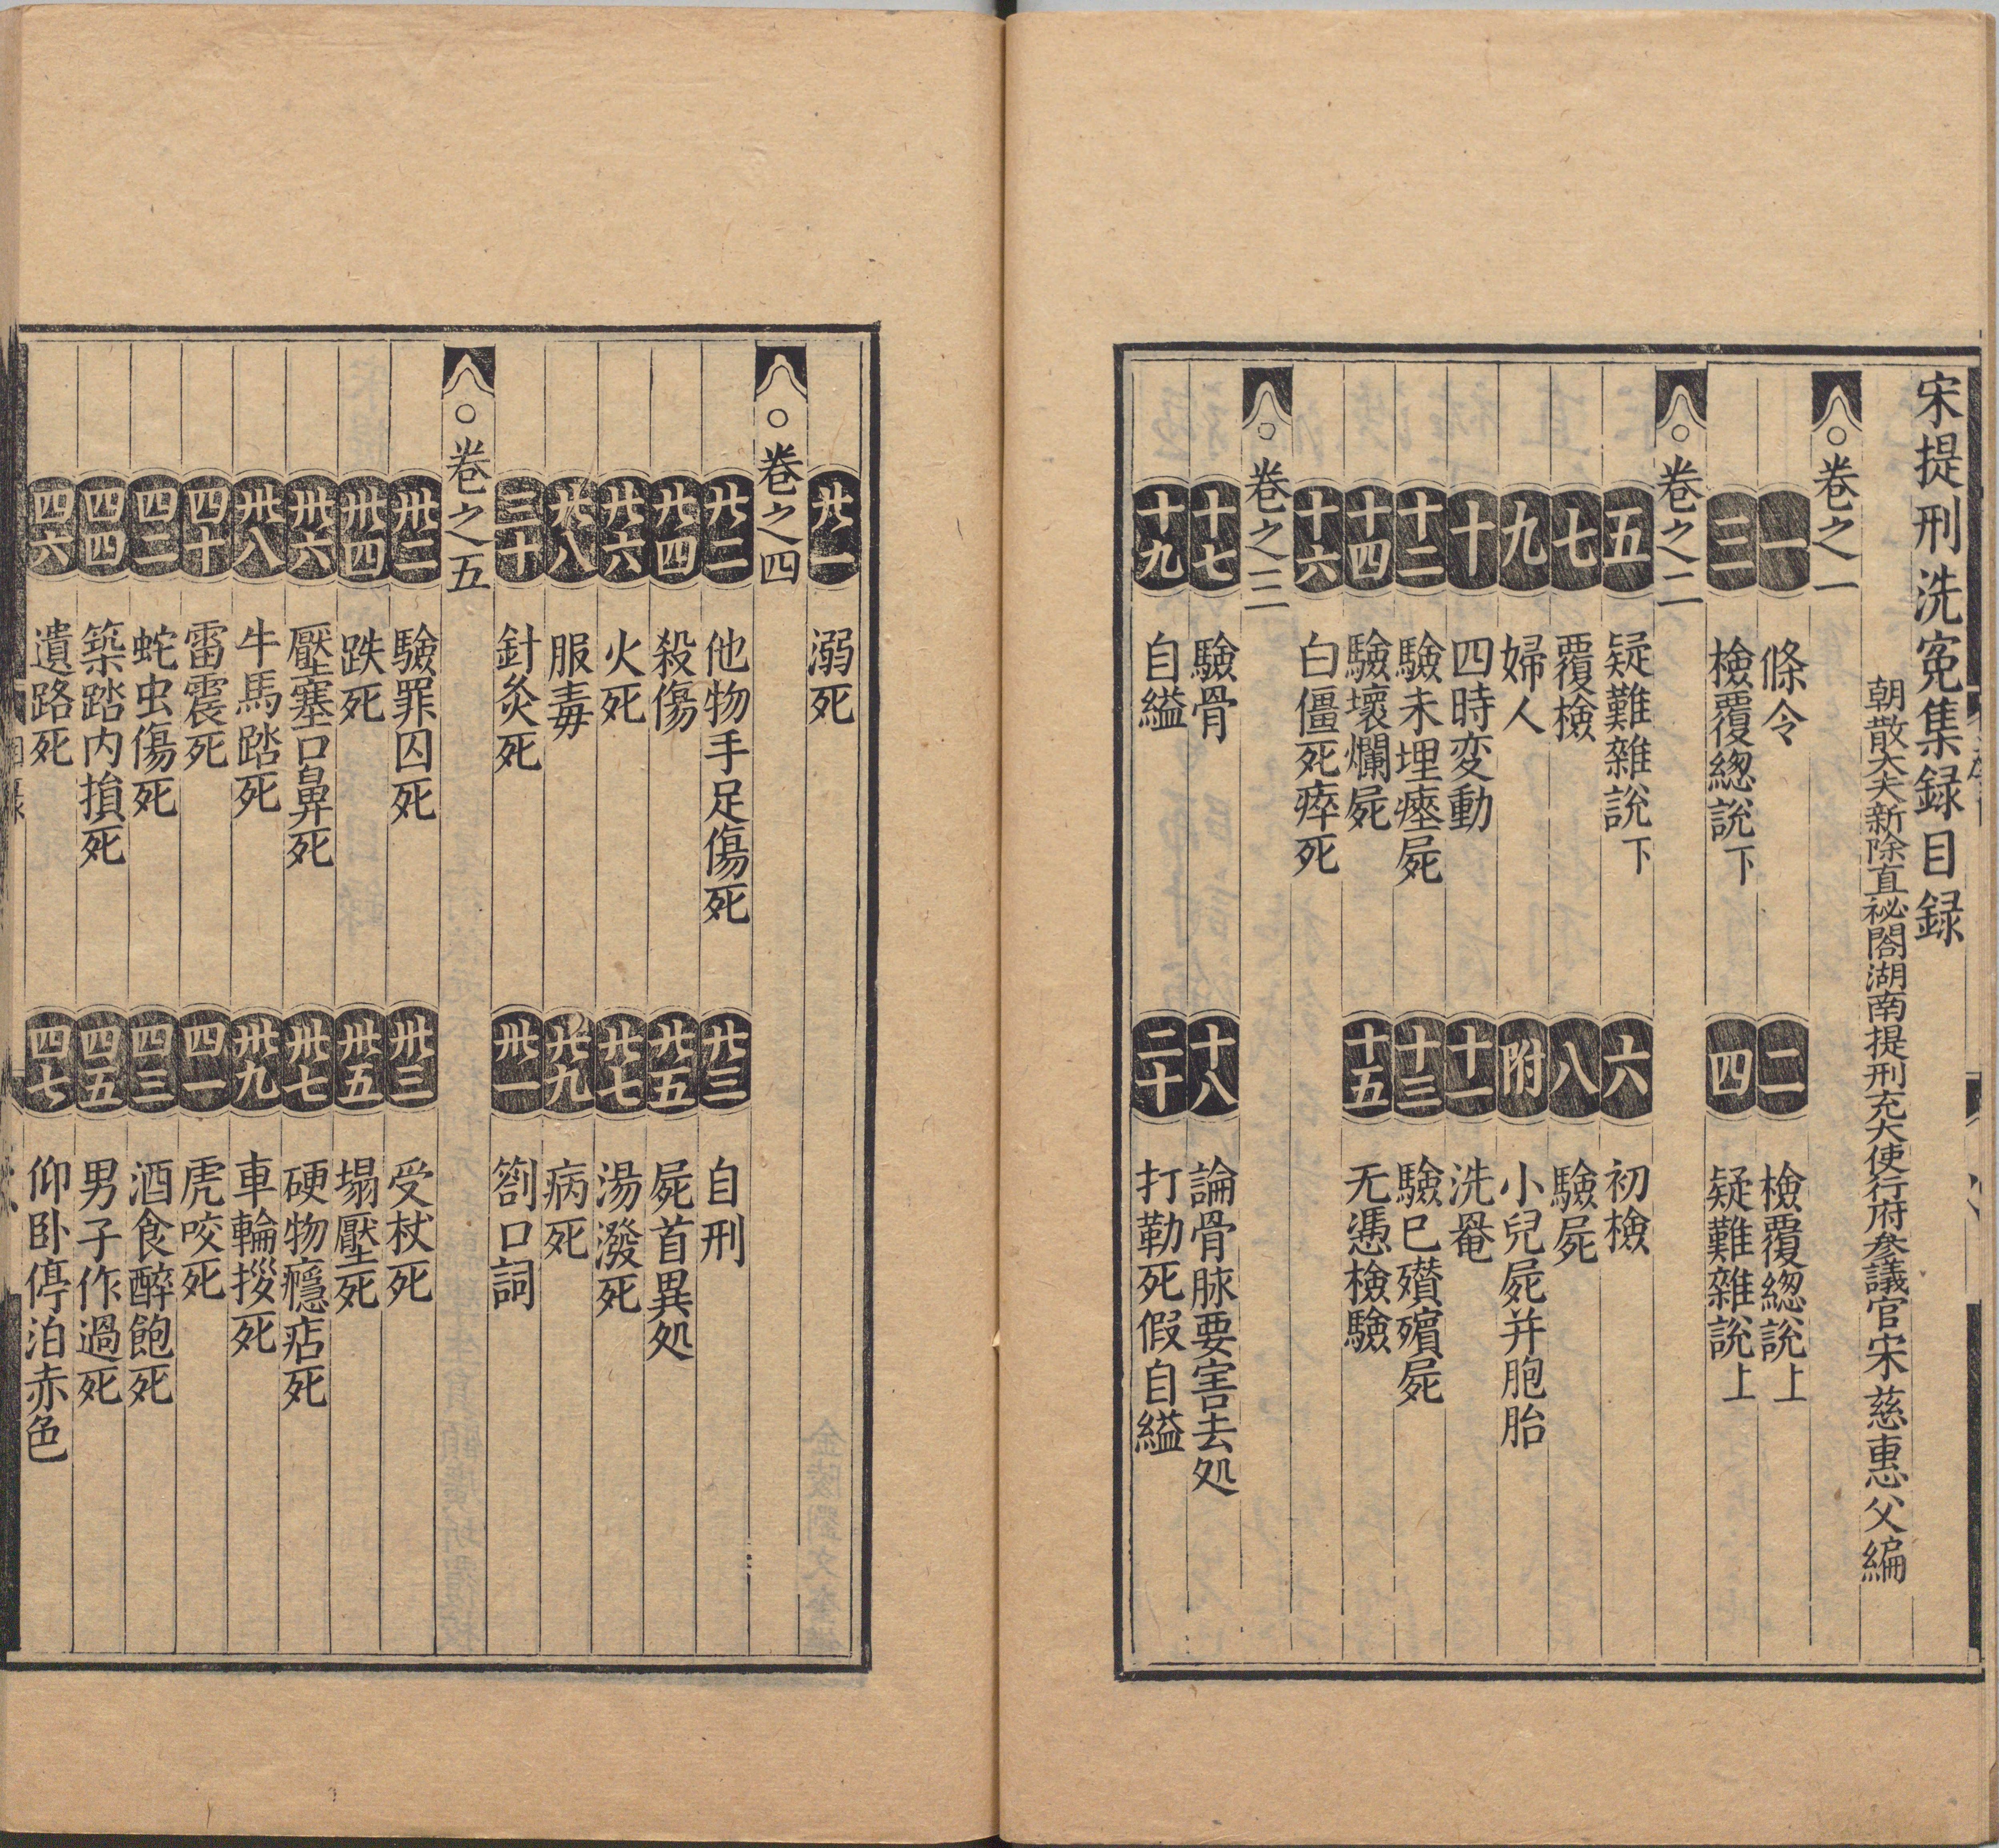 宋提刑洗冤集録目録
朝散大夫新除直祕閣湖南提刑充大使行府參議官宋慈惠父編
○卷之一
一 條令 二 檢覆緫說上
三 檢覆緫說下 四 疑難雜說上
○卷之二
五 疑難雜說下 六 初檢
七 覆檢 八 驗屍
九 婦人 附 小兒屍并胞胎
十 四時变動 十一 洗罨
十二 驗未埋瘞屍 十三 驗巳殯殯屍
十四 驗壞爛屍 十五 无憑檢驗
十六 白僵死瘁死
○卷之三
十七 驗骨 十八 論骨脉要害去処
十九 自縊 二十 打勒死假自縊
廿一 溺死
○卷之四
廿二 他物手足傷死 廿三 自刑
廿四 殺傷 廿五 屍首異処
廿六 火死 廿七 湯潑死
廿八 服毒 廿九 病死
三十 針灸死 卅一 劄口詞
○卷之五
卅二 驗罪囚死 卅三 受杖死
卅四 跌死 卅五 塌壓死
卅六 壓塞口鼻死 卅七 硬物癮痁死
卅八 牛馬踏死 卅九 車輪拶死
四十 雷震死 四一 虎咬死
四二 蛇虫傷死 四三 酒食醉飽死
四四 築踏内損死 四五 男子作過死
四六 遺路死 四七 仰卧停泊赤色